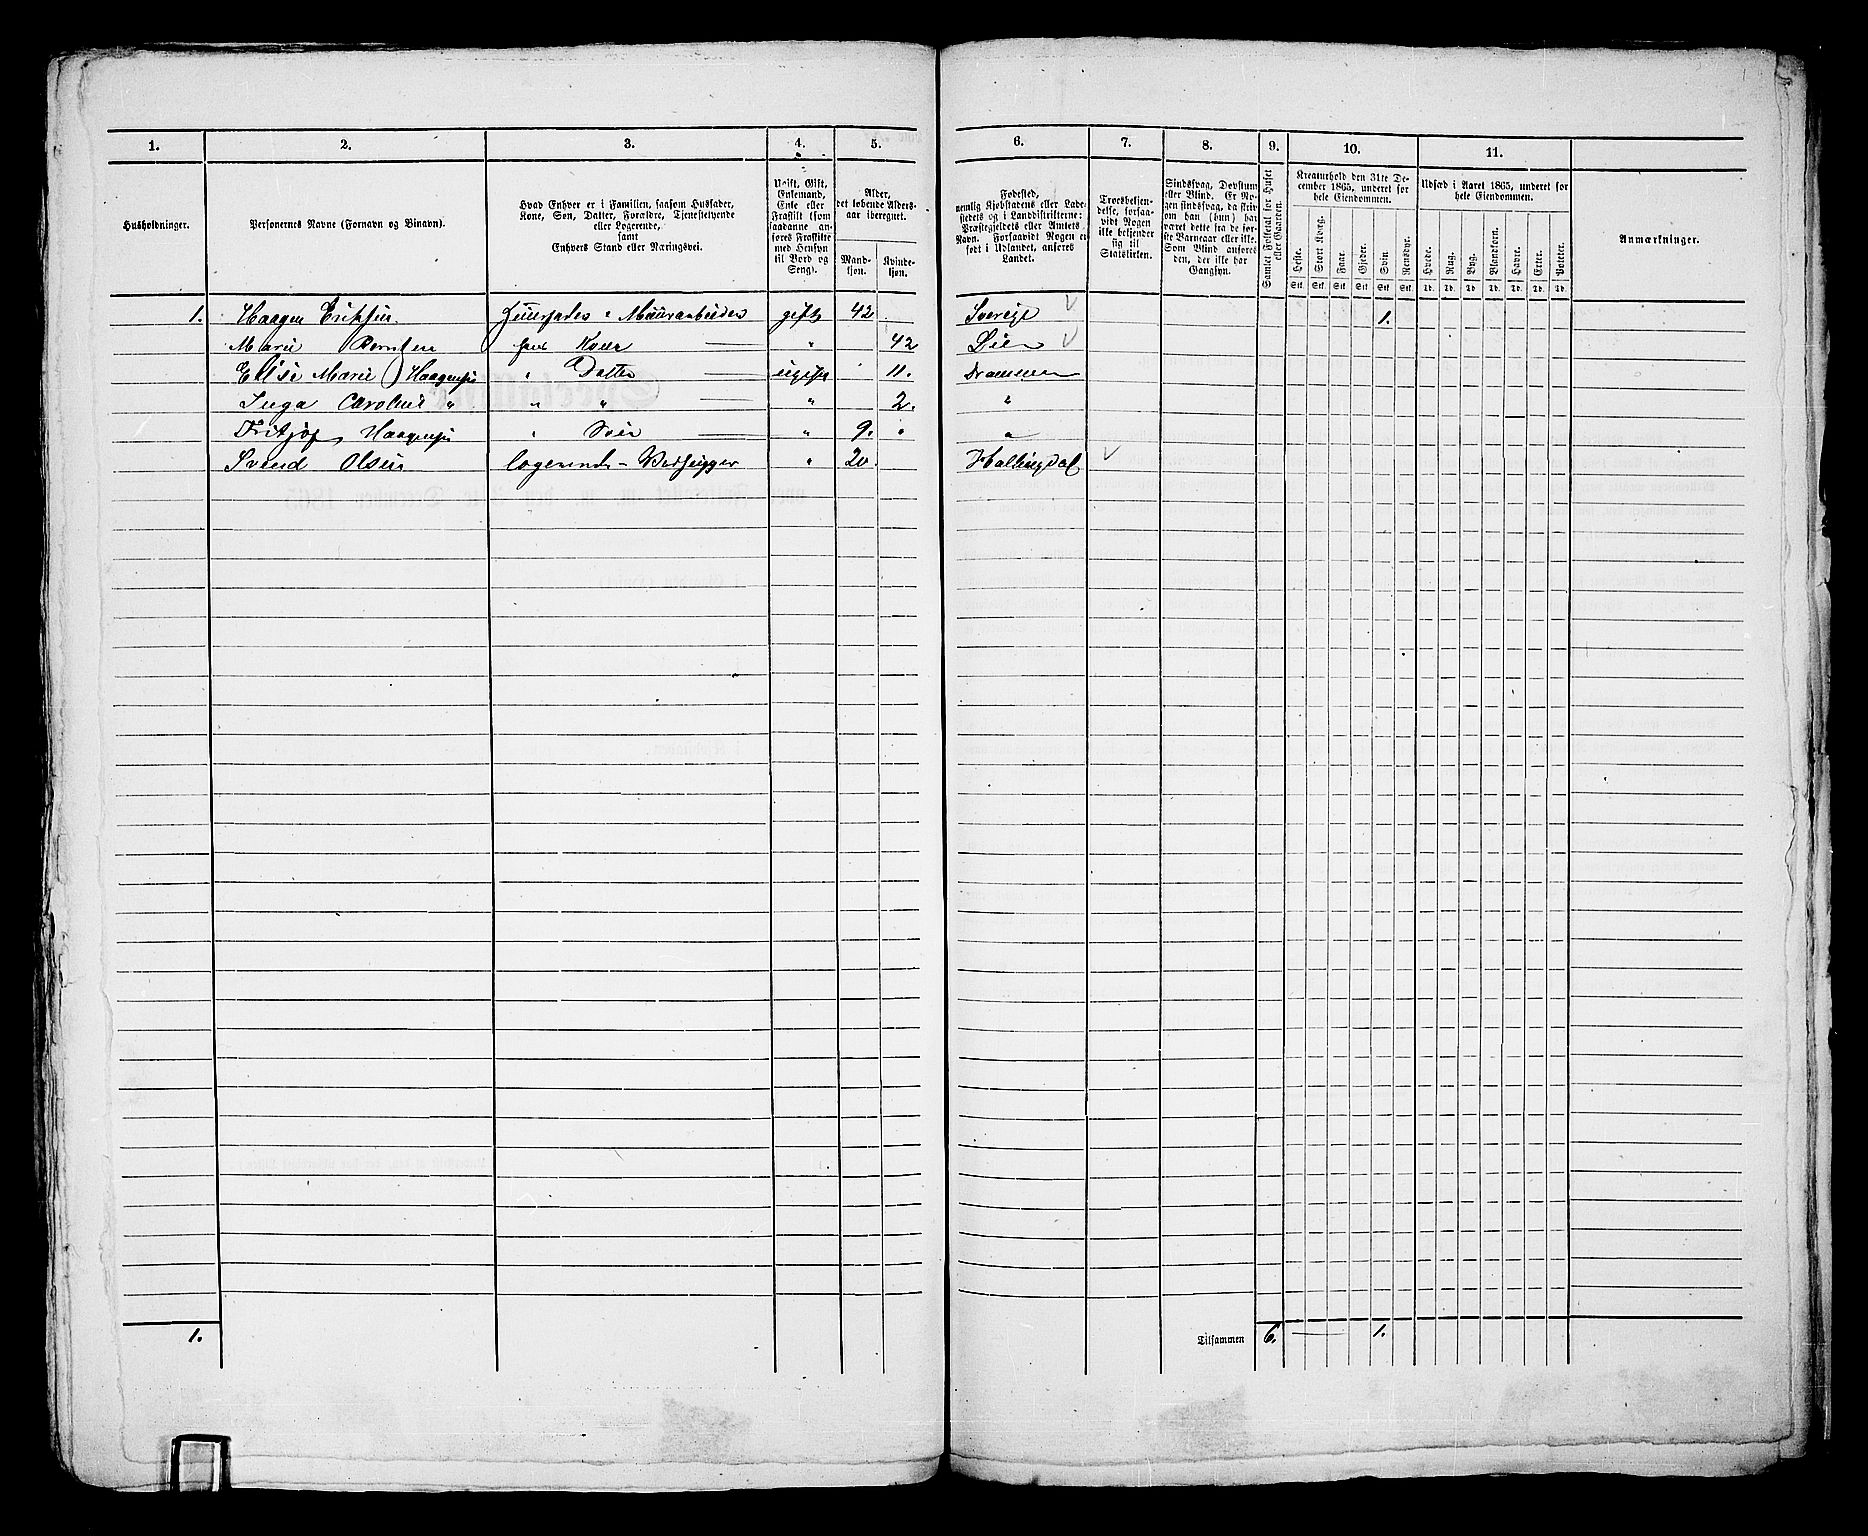 1. 2. 3. 4. 5. 6. 7. 8. 9. 10. 11.
Husholdninger.
Personernes Navne (Fornavn og Binavn).
Hvad Enhver er i Familien, saasom Husfader,
Kone, Søn, Datter, Forældre, Tjenestetyende
eller Logerende,
samt
Enhvers Stand eller Næringsvei.
Ugift, Gift,
Enkemand,
Enke eller
Fraskilt (som
saadanne an-
føres Fraskilte
med Hensyn
til Bord og
Seng).
Alder,
det løbende Alders-
aar iberegnet.
Mand-
kjøn.
Kvinde-
kjøn.
Fødested,
nemlig Kjøbstadens eller Lade-
stedets og i Landdistrikterne:
Præstegjeldets eller Amtets
Navn. Forsaavidt Nogen er
født i Udlandet, anføres
Landet.
Troesbekjen-
delse, forsaa-
vidt Nogen
ikke bekjender
sig til
Statskirken.
Sindssvag, Døvstum
eller Blind. Er No-
gen sindssvag, da skrives
om han (hun) har
været dette fra de før-
ste Barneaar eller ikke.
Som Blind anføres
den, der ikke har
Gangsyn.
Samlet Folketal for Huset
eller Gaarden.
Kreaturhold den 31te De-
cember 1865, underet for
hele Eiendommen.
Heste. Stort Kvæg. Faar. Gjeder. Svin. Rensdyr.
Stk. Stk. Stk. Stk. Stk. Stk.
Udsæd i Aaret 1865, underet for
hele Eiendommen.
Hvede. Rug. Byg. Blandkorn. Havre. Erter. Poteter.
Td. Td. Td. Td. Td. Td. Td.
Anmærkninger.
1. Haagen Eriksen Huusfader Muurarbeider gift 42 Sverige 1.
Marie Berntsen hans Kone " 42 Lier
Elise Marie Haagensen " Datter ugift 11. Drammen
Inga Caroline " " " " 2. "
Fritjof Haagensen " Søn " 9. "
Svend Olsen logerende - Vedhugger " 20 Hallingdal
1. Tilsammen 6. 1.